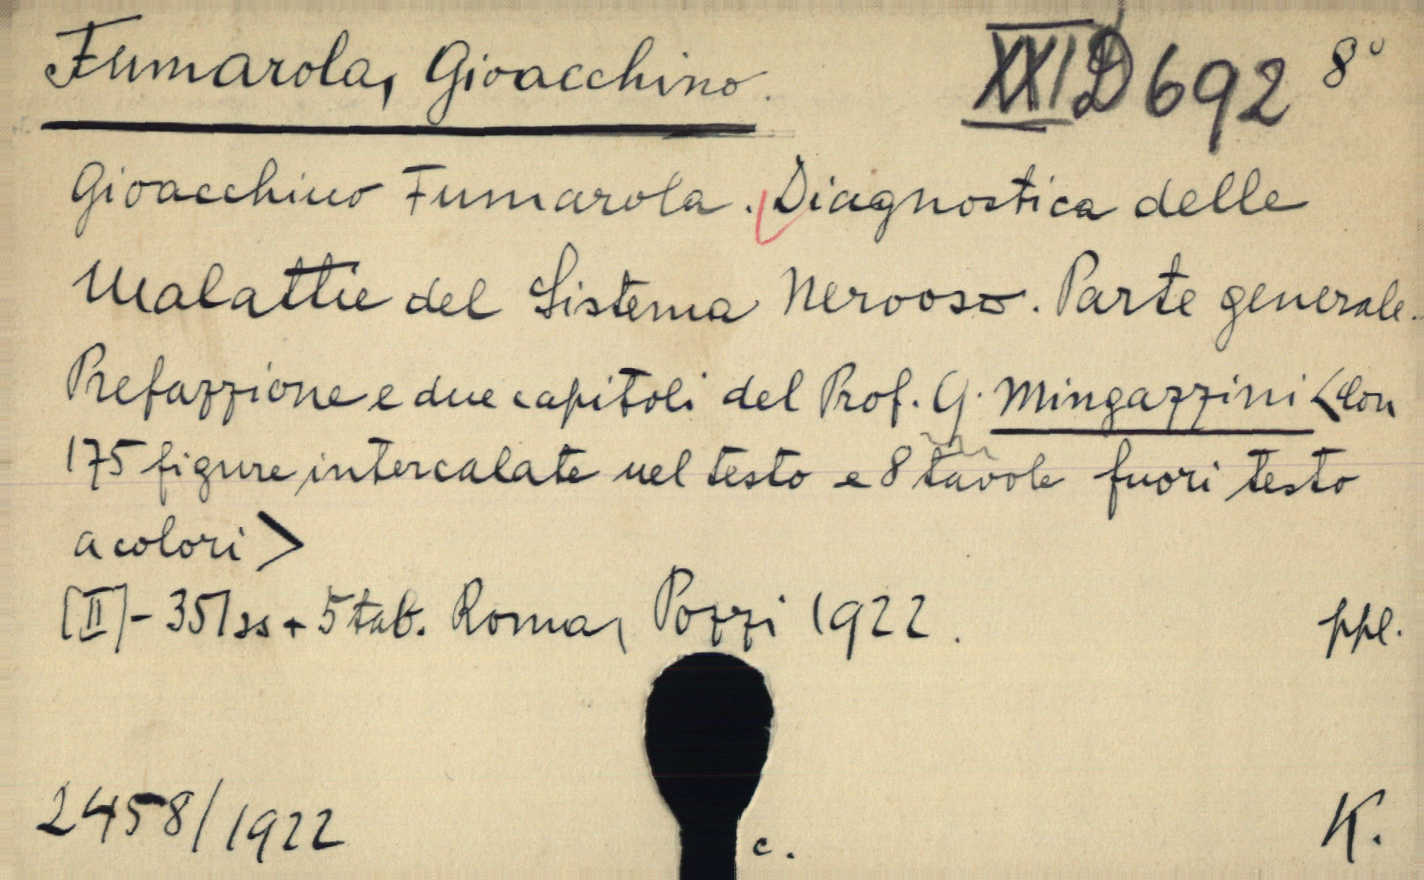 Fumarola, Gioacchino. XXI D 692 8°
Gioacchino Fumarola. Diagnostica delle
Malattie del Sistema Nervoso. Parte generale.
Prefazzione e due capitoli del Prof. G. Mingazzini <Con
175 figure intercalate nel testo e 8 tavole fuori testo
a colori>
[II] - 351 ss + 5 tab. Roma, Pozzi 1922. ppl.
2458/1922 c. K.